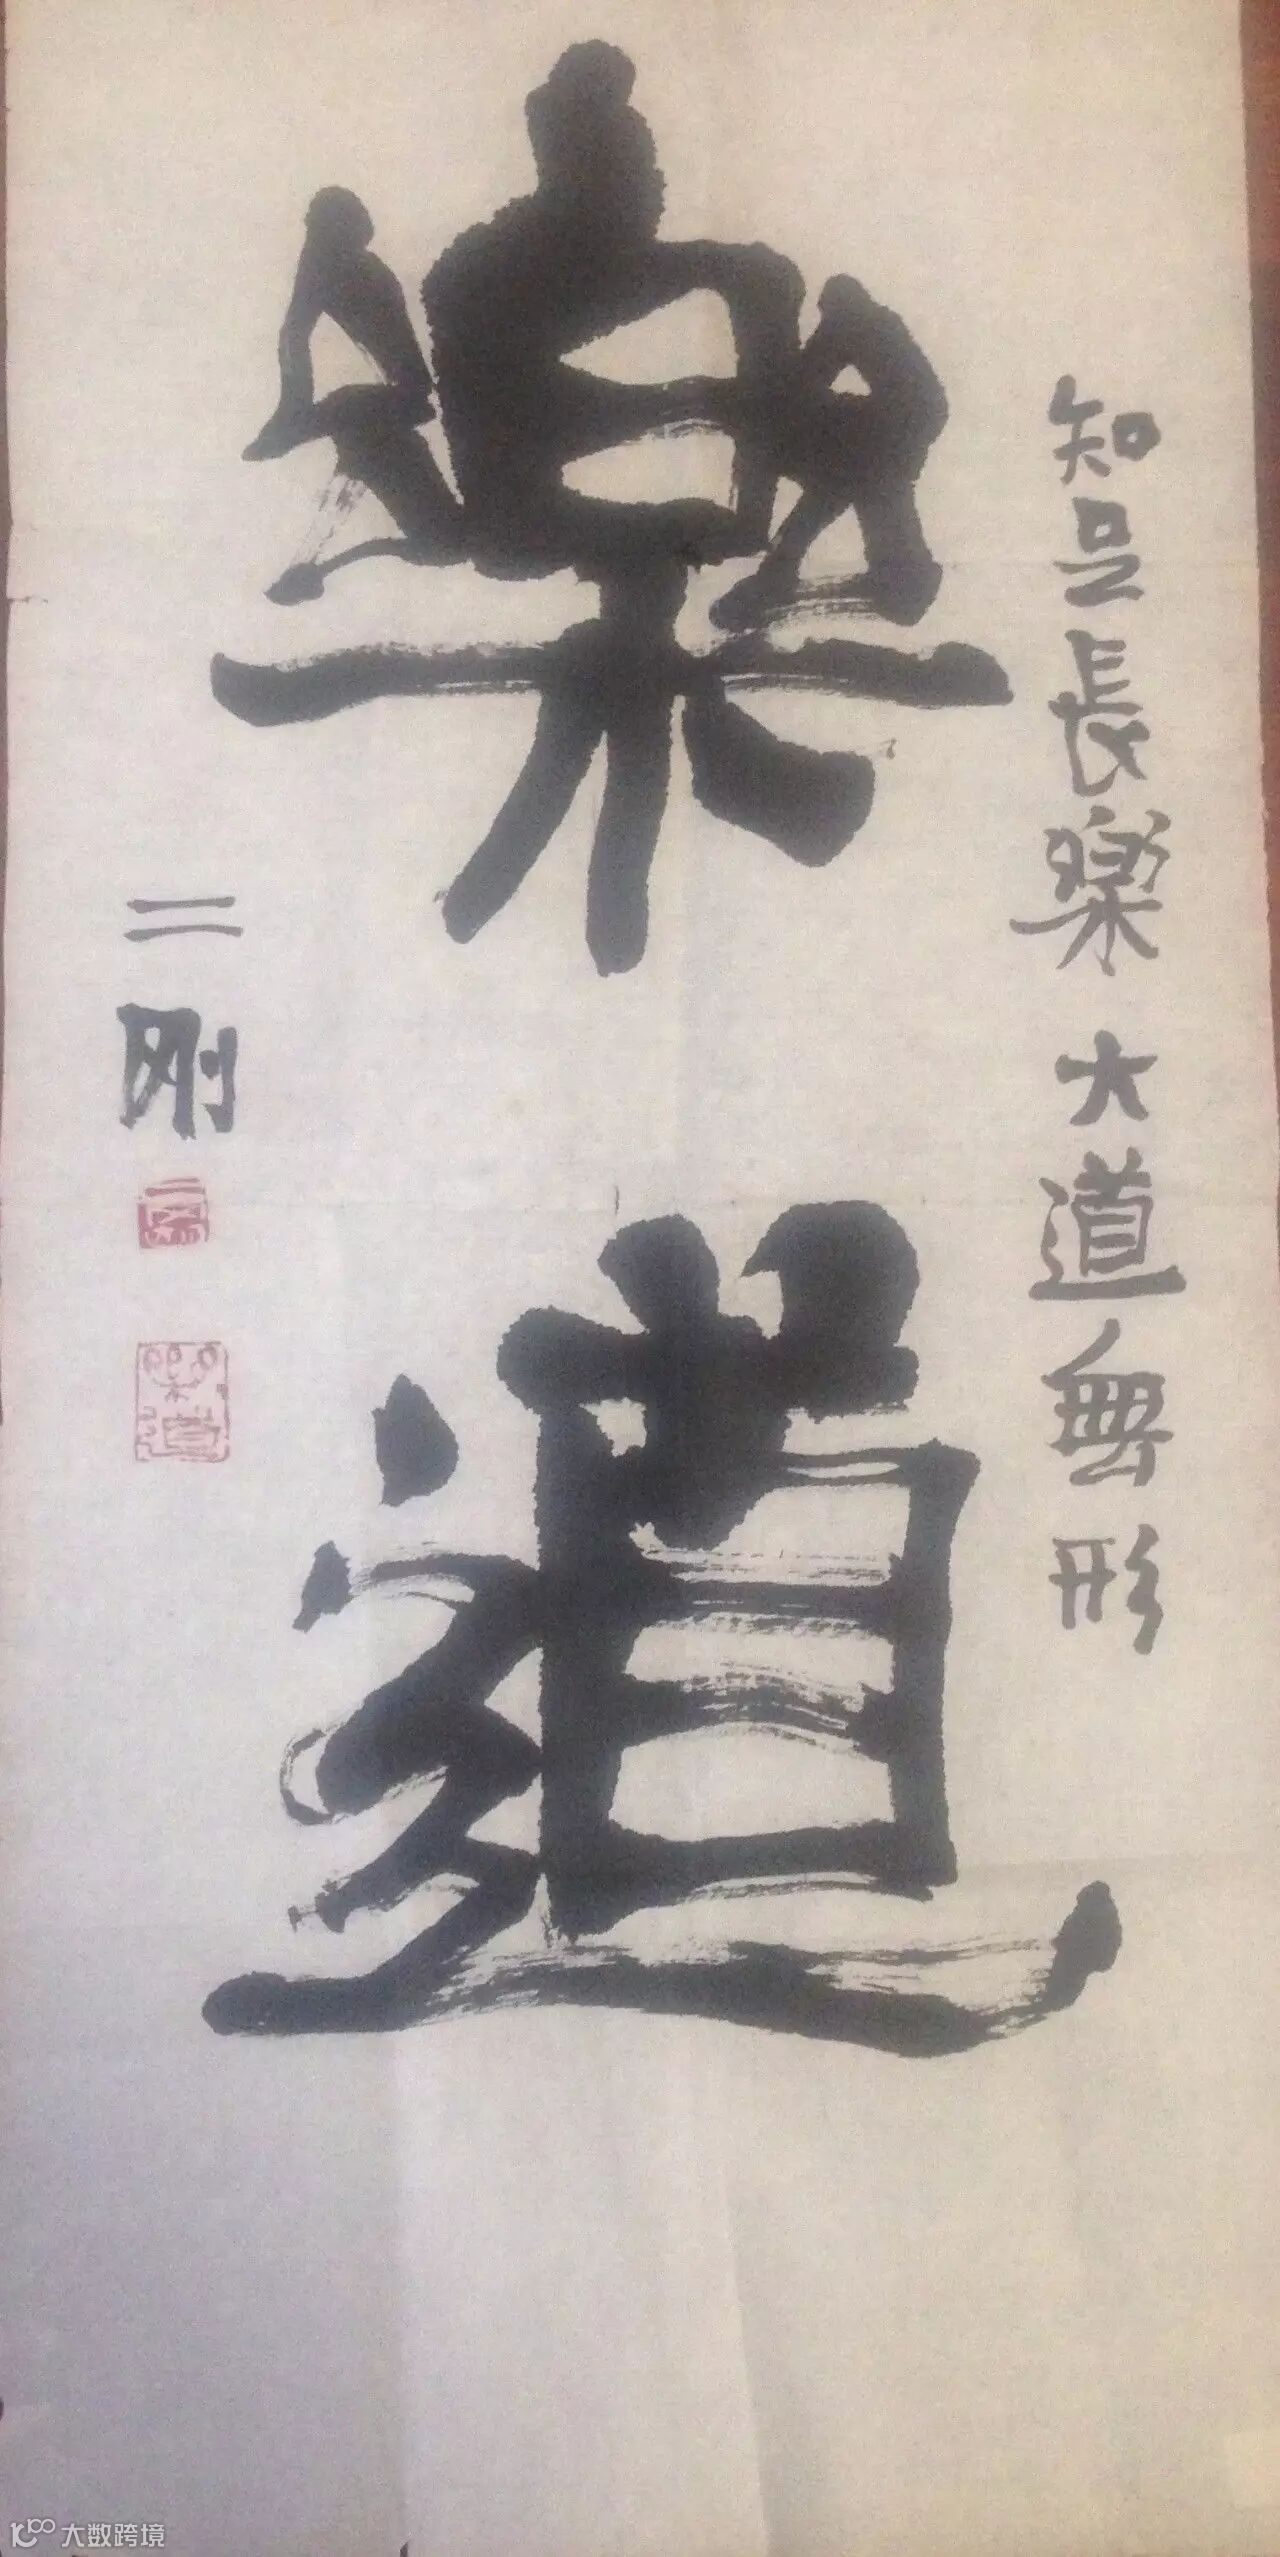 知足長樂 大道無形
樂道
二刚
二刚
樂道
大数跨境